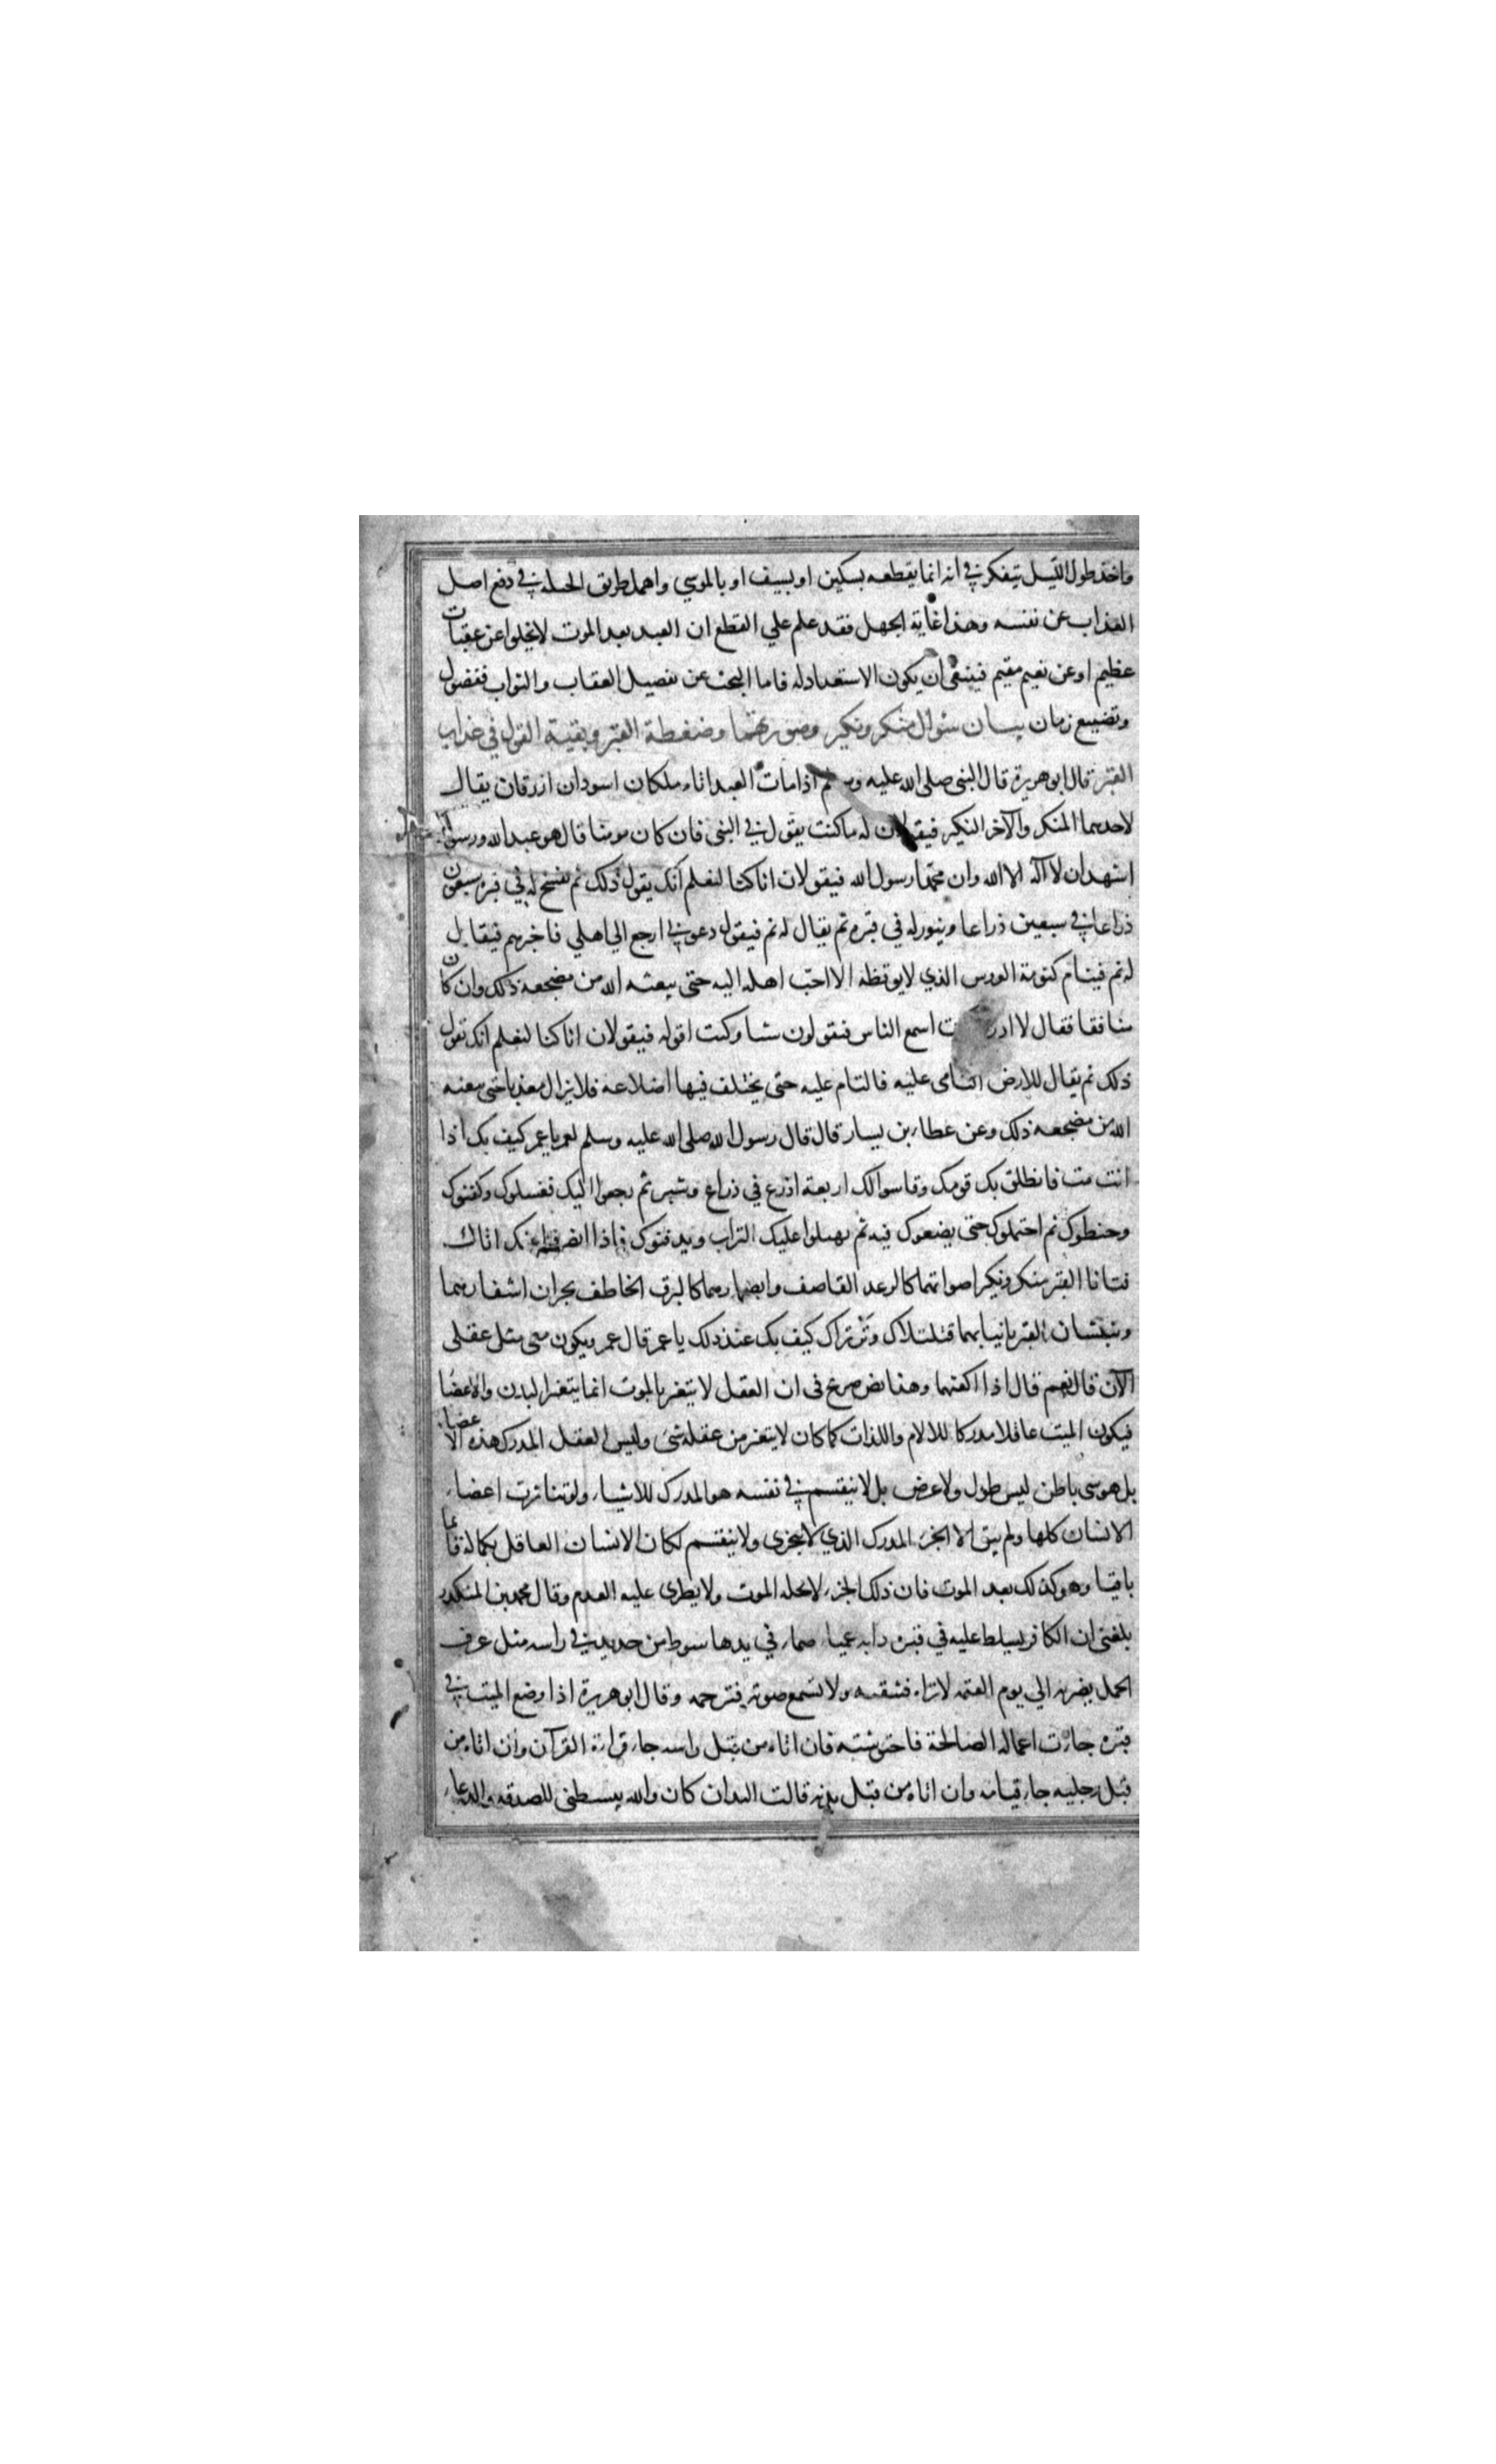 واخذ طول الليل يتفكر في انه انما يقطعه بسكين او بسيف او بالموسي واهمل طريق الحيلة في دفع اصل
العذاب عن نفسه وهذا غاية الجهل فقد علم علي القطع ان العبد بعد الموت لا يخلوا عن عقبات
عظيم او عن نعيم مقيم فينبغي ان يكون الاستعداد له فاما البحث عن تفصيل العقاب والثواب ففضول
وتضييع زمان بيان سؤال منكر ونكير وصورتهما وضغطة القبر وبقية القول في عذاب
القبر قال ابو هريرة قال النبي صلى الله عليه وسلم اذا مات العبد اتاه ملكان اسودان ازرقان يقال
لاحدهما المنكر والآخر النكير فيقولان له ما كنت يقول في النبي فان كان مومنا قال هو عبد الله ورسوله
اشهد ان لا اله الا الله وان محمدا رسول الله فيقولان انا كنا لنعلم انك يقول ذلك ثم يفسح له في قبره سبعون
ذراعا في سبعين ذراعا وينور له في قبره ثم يقال له نم فيقول دعوني ارجع الي اهلي فاخبرهم فيقال
له نم فينام كنومة العروس الذي لا يوقظه الا احب اهله اليه حتى يبعثه الله من مضجعه ذلك وان كان
منافقا فقال لا ادر اسمع الناس فيقولون شيا وكنت اقوله فيقولان انا كنا لنعلم انك تقول
ذلك ثم يقال للارض التامى عليه فالتام عليه حتى يختلف فيها اضلاعه فلا يزال معذبا حتى يبعثه
الله من مضجعه ذلك وعن عطاء بن يسار قال قال رسول الله صلى الله عليه وسلم لعمر يا عمر كيف بك اذا
انت مت فانطلق بك قومك وقاسوا لك اربعة اذرع في ذراع وشبر ثم رجعوا اليك فغسلوك وكفنوك
وحنطوك ثم احتملوك حتى يضعوك فيه ثم يهيلوا عليك التراب ويدفنوك فاذا انصرفوا عنك اتاك
فتانا القبر منكر ونكير اصواتهما كالرعد القاصف وابصارهما كالبرق الخاطف يجران اشفارهما
ويبحثان القبر بانيابهما فتلتلاك وترتراك كيف بك عند ذلك يا عمر قال عمر ويكون معي مثل عقلي
الآن قال نعم قال اذا اكفيهما وهذا نص صريح في ان العقل لا يتغير بالموت انما يتغير البدن والاعضا
فيكون الميت عاقلا مدركا للالام واللذات كما كان لا يتغير من عقله شيء وليس العقل المدرك هذه الاعضاء
بل هو شي باطن ليس طول ولا عرض بل لا ينقسم في نفسه هو المدرك للاشياء ولو تناثرت اعضاء
الانسان كلها ولم يبق الا الجزء المدرك الذي لا يتجزى ولا ينقسم لكان الانسان العاقل بكماله قائما
باقيا وهو كذلك بعد الموت فان ذلك الجزء لا يحله الموت ولا يطرى عليه العدم وقال محمد بن المنكدر
بلغني ان الكافر يسلط عليه في قبره دابه عمياء صماء في يدها سوط من حديد في راسه مثل عرف
الجمل يضربه الي يوم القيمة لا تراه ولا تسمع صوته فترحمه وقال ابو هريرة اذا وضع الميت في
قبره جاءت اعماله الصالحة فاحتوشته فان اتاه من قبل راسه جاء قراءة القرآن وان اتاه من
قبل رجليه جاء قيامه وان اتاه من قبل يده قالت اليدان كان والله يبسطني للصدقه والدعاء